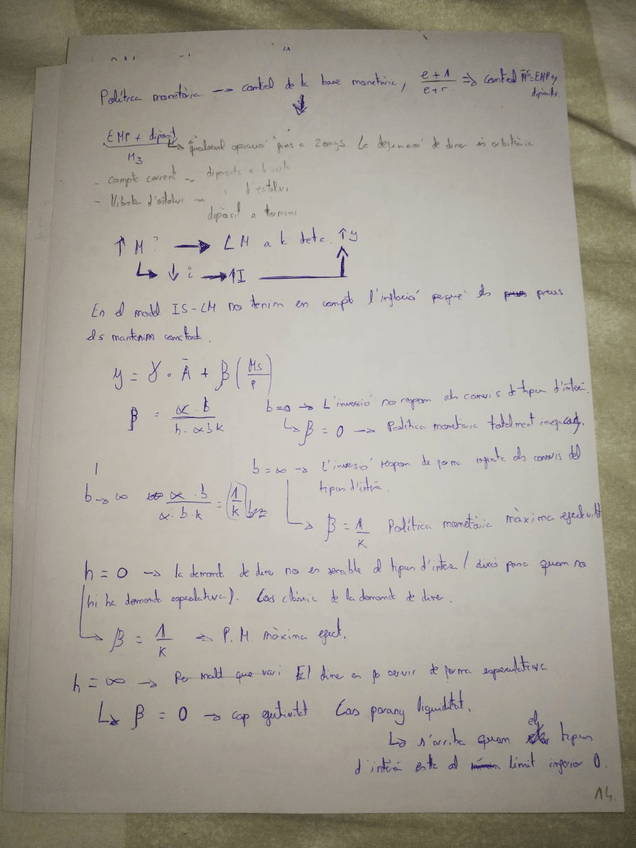 Política monetària → control de la base monetària, e+1/e+r ⇒ control M̄ᵉ: EMP y
dipòsits
EMP + dipòsit
M3
fins a 2 anys. La de dine és arbitrària
- compte corrent → dipòsits a la vista
- llibreta d'estalvi → " d'estalvi
dipòsit a termini
↑ M? → LM a la dreta. ↑y
↳ ↓ i → ↑I
En el model IS-LM no tenim en compte l'inflació perquè els preus
els mantenim constant.
y = γ · Ā + β (Ms/P)
β = α · b / h · αbk
b=0 → L'inversió no respon als canvis de tipus d'interès.
↳ β = 0 → Política monetària totalment
b = ∞ → L'inversió respon de forma infinita als canvis del
tipus d'interès.
b → ∞ α · b / α · b · k = (1/k)
↳ β = 1/k Política monetària màxima efectivitat
h = 0 → la demanda de dine no és sensible al tipus d'interès (això passa quan no
hi ha demanda especulativa). Cas clàssic de la demanda de dine.
↳ β = 1/k → P.M màxima efect.
h = ∞ → Per molt que vari El dine es pot servir de forma especulativa
↳ β = 0 → cap efectivitat Cas parany liquiditat.
↳ s'arriba quan el tipus
d'interès està al límit inferior 0.
14.